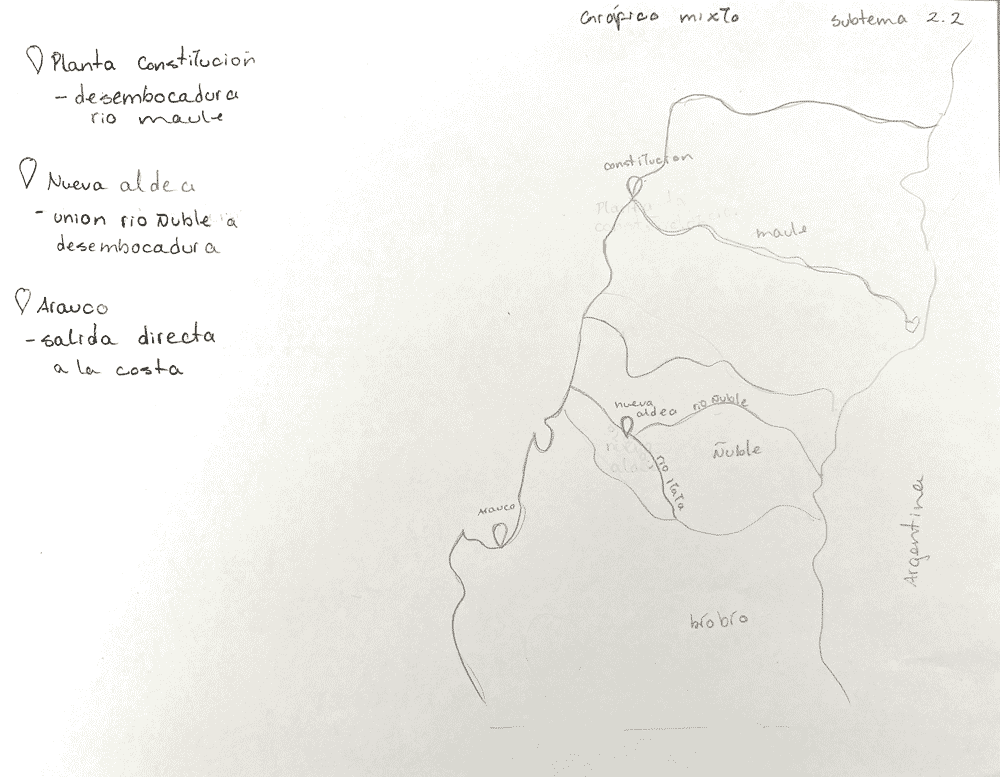 Gráfico mixto
subtema 2.2
Planta Constitución
- desembocadura
rio maule
Nueva aldea
- union rio Ñuble a
desembocadura
Arauco
- salida directa
a la costa
constitucion
maule
nueva
aldea
rio Ñuble
Ñuble
rio itata
Arauco
Argentina
bío bío